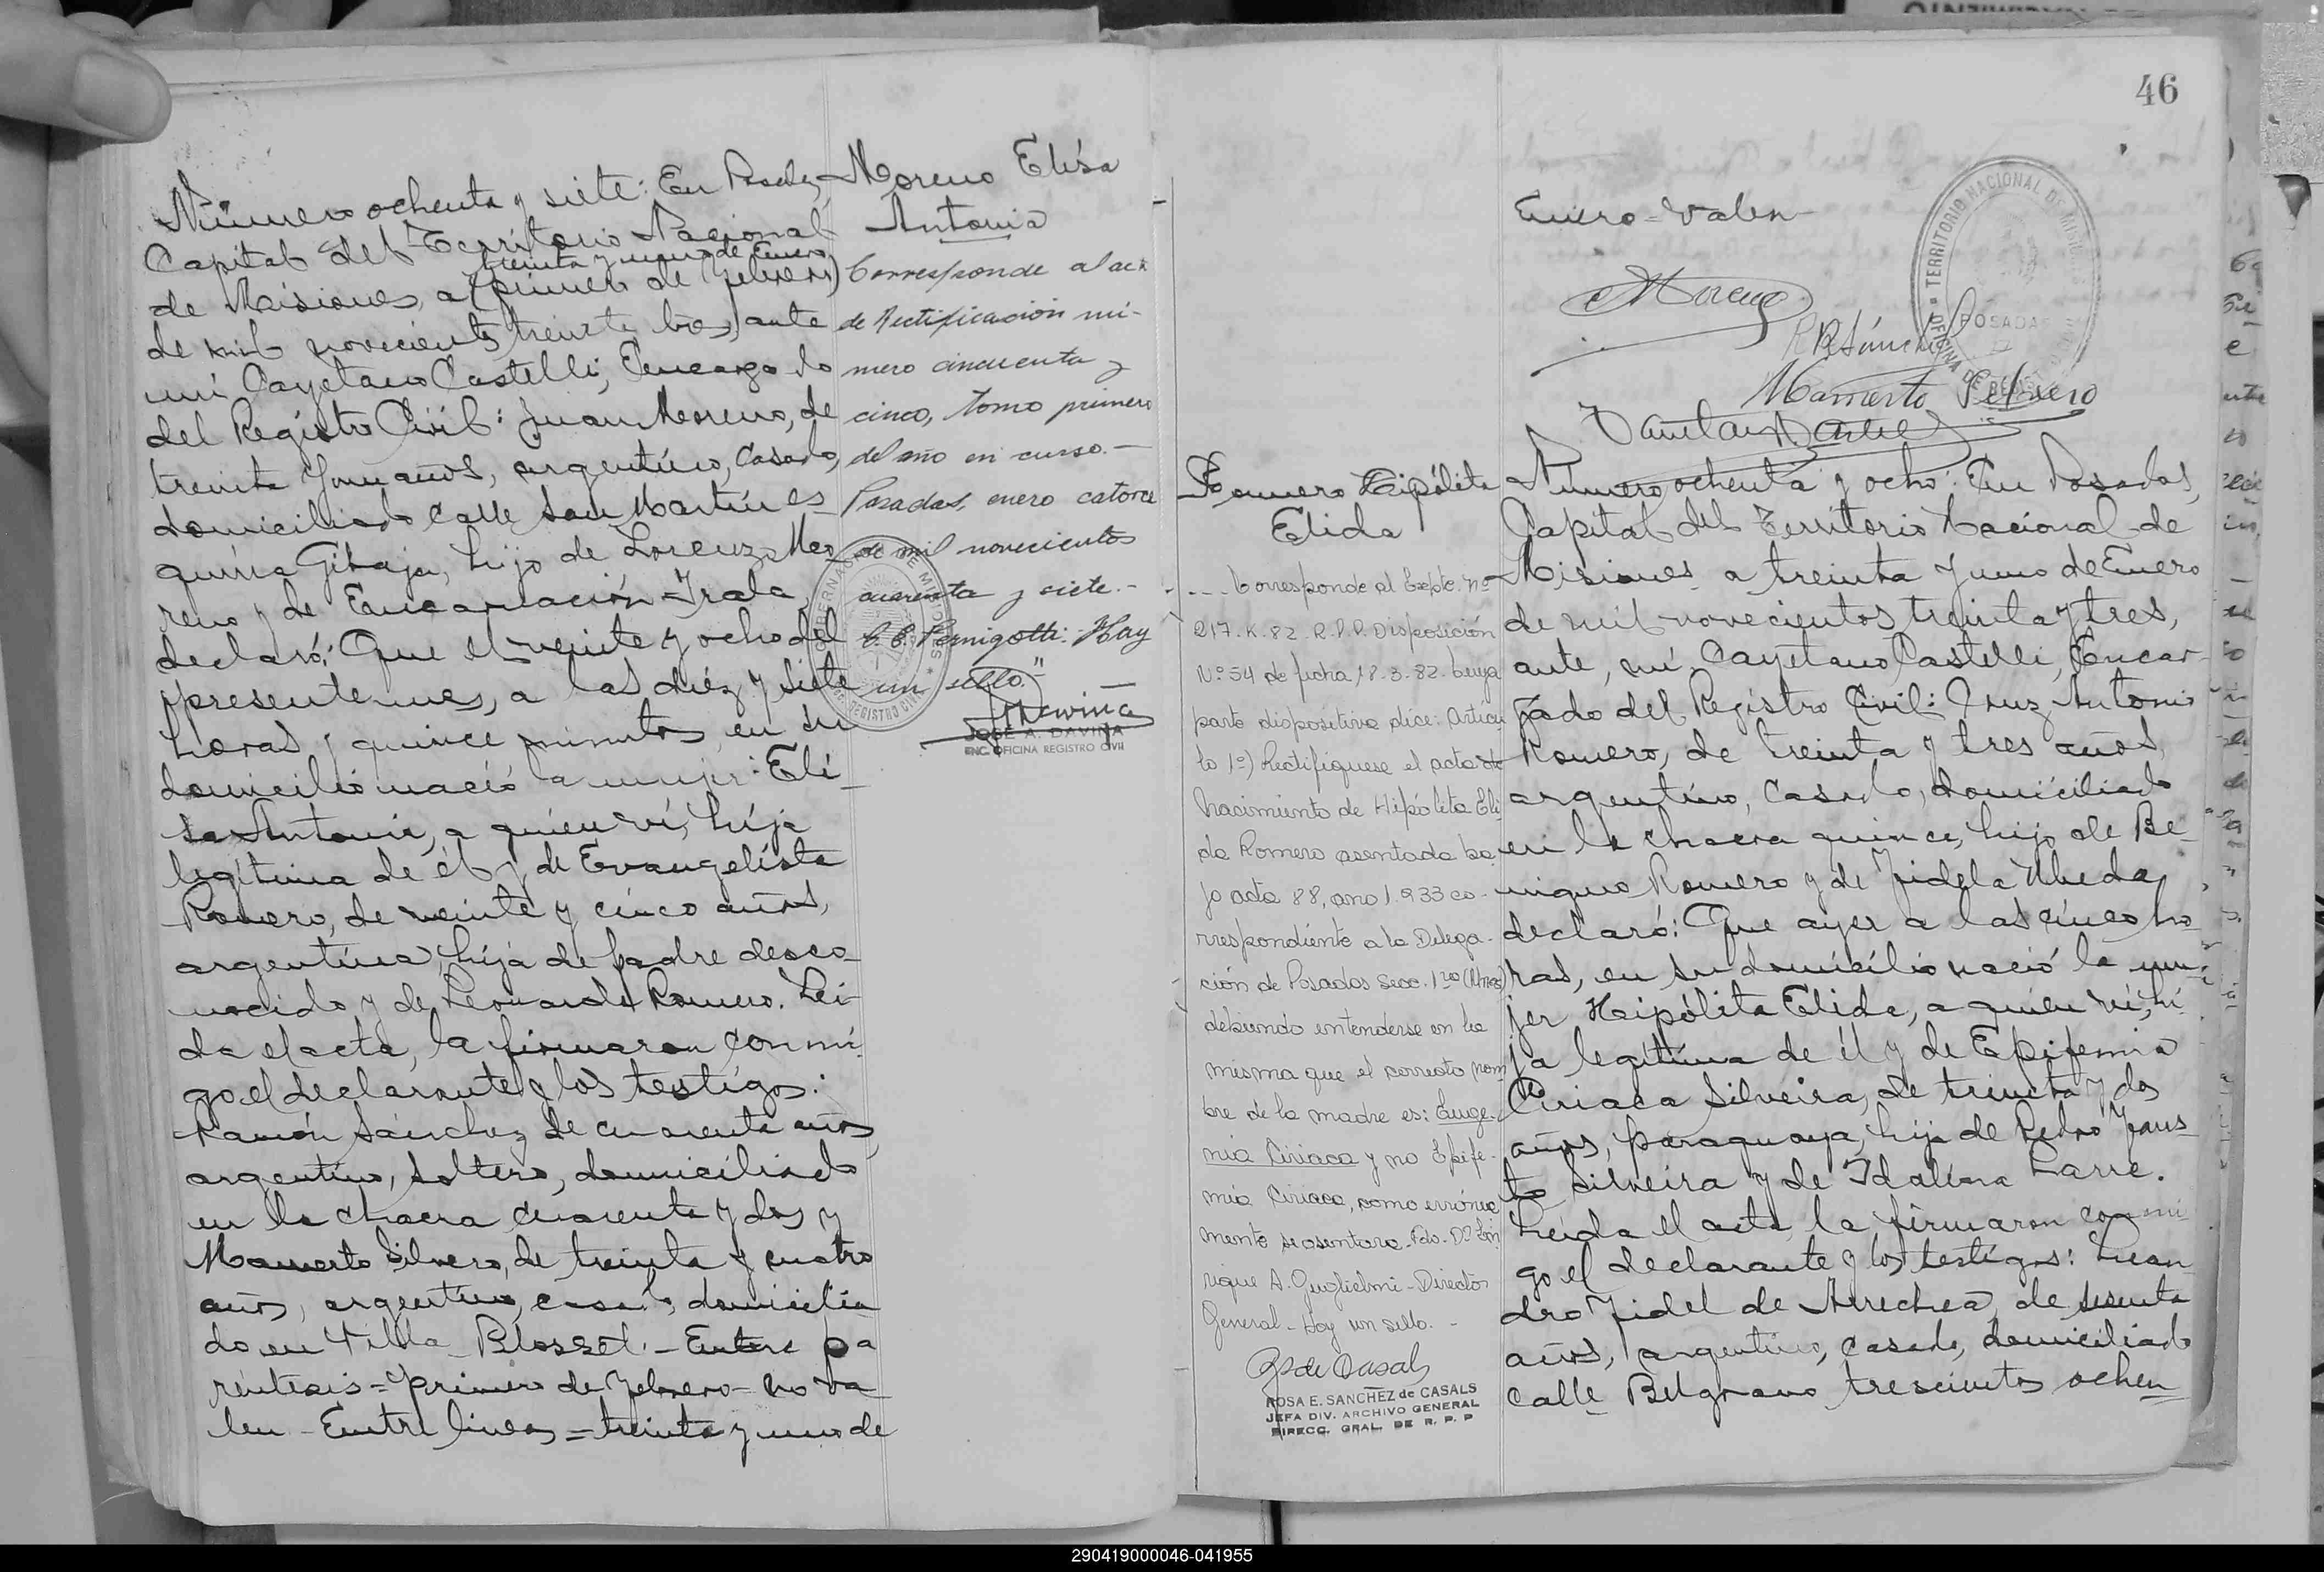 Número ochenta y siete: En Posadas,
Capital del Territorio Nacional
treinta y uno de Enero
de Misiones, a (primero de febrero)
de mil novecientos treinta y tres, ante
mí, Cayetano Castelli, Encargado
del Registro Civil: Juan Moreno, de
treinta y un años, argentino, casado,
domiciliado calle San Martín es-
quina Gibaja, hijo de Lorenzo Mo
reno y de Encarnación Irala,
declaró: Que el veinte y ocho del
presente mes, a las diez y siete
horas y quince minutos, en su
domicilio nació la mujer: Eli-
sa Antonia, a quien vi, hija
legítima de él y de Evangelista
Romero, de veinte y cinco años,
argentina, hija de padre desco-
nocido y de Leonarda Romero. Leí-
da el acta, la firmaron conmi-
go el declarante y los testigos:
Ramón Sánchez de cuarenta años,
argentino, soltero, domiciliado
en la chacra cuarenta y dos y
Mamerto Silvero, de treinta y cuatro
años, argentino, casado, domicilia
do en Villa Blosset.- Entre pa
réntesis = primero de febrero - no va
len - Entre líneas = treinta y uno de
Moreno Elisa
Antonia
Corresponde al acta
de Rectificación nú-
mero cincuenta y
cinco, tomo primero
del año en curso.-
Posadas, enero catorce
de mil novecientos
cuarenta y siete.-
Pernigotti. Hay
un sello."
JOSE A. DAVIÑA
ENC. OFICINA REGISTRO CIVIL
46
Enero - Valen
TERRITORIO NACIONAL DE MISIONES
POSADAS
Moreno
R Sánchez
Mamerto Silvero
Romero Hipólita
Elida
Corresponde al Expte. Nº
217-K-82 R.P.P. Disposición
Nº 54 de fecha 18-3-82 Cuya
parte dispositiva dice: Artícu
lo 1º) Rectifíquese el acta de
Nacimiento de Hipólita Eli
da Romero asentada ba
jo acta 88, año 1.933 co-
rrespondiente a la Delega-
ción de Posadas Secc. 1ra
debiendo entenderse en la
misma que el correcto nom
bre de la madre es: Euge-
nia Ciriaca y no Epife-
mia Ciriaca, como errónea
mente se asentara. Fdo. Dº En
rique A. Guglielmi - Director
General - Hay un sello. -
ROSA E. SANCHEZ de CASALS
JEFA DIV. ARCHIVO GENERAL
DIRECC. GRAL. DE R. P. P
Número ochenta y ocho: En Posadas,
Capital del Territorio Nacional de
Misiones a treinta y uno de Enero
de mil novecientos treinta y tres,
ante, mí, Cayetano Castelli, Encar-
gado del Registro Civil: Cruz Antonio
Romero, de treinta y tres años,
argentino, casado, domiciliado
en la chacra quince, hijo de Be-
nigno Romero y de Fidela Ubeda,
declaró: Que ayer a las cinco ho-
ras, en su domicilio nació la mu-
jer Hipólita Elida, a quien vi, hi
ja legítima de él y de Epifemia
Ciriaca Silveira, de treinta y dos
años, paraguaya, hija de Pedro Faus-
to Silveira y de Idalina Larre.
Leída el acta, la firmaron conmi
go el declarante y los testigos: Lean
dro Fidel de Arrechea, de sesenta
años, argentino, casado, domiciliado
calle Belgrano trescientos ochen
290419000046-041955